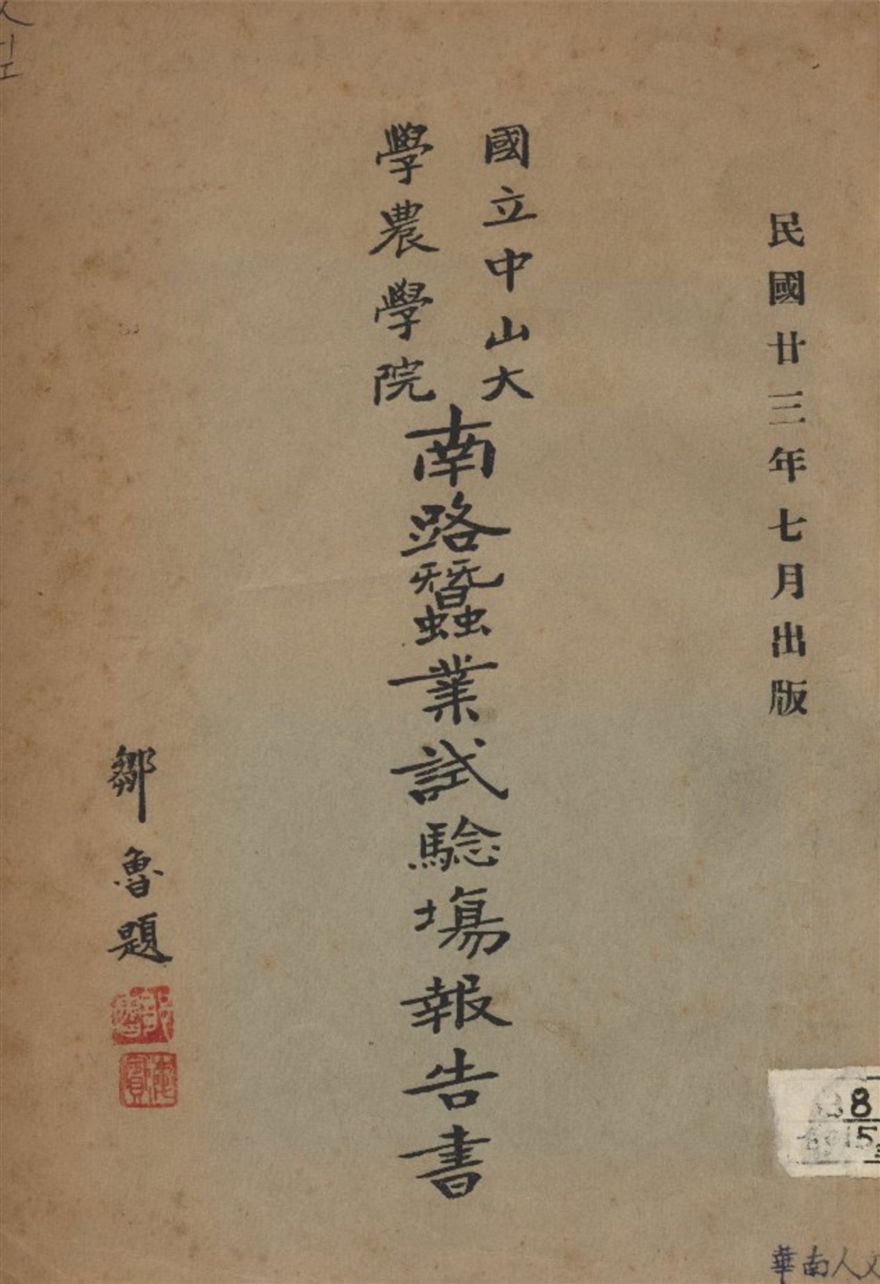 民國廿三年七月出版
國立中山大
學農學院
南路蠶業試驗場報告書
鄒魯題
8
15
華南人文